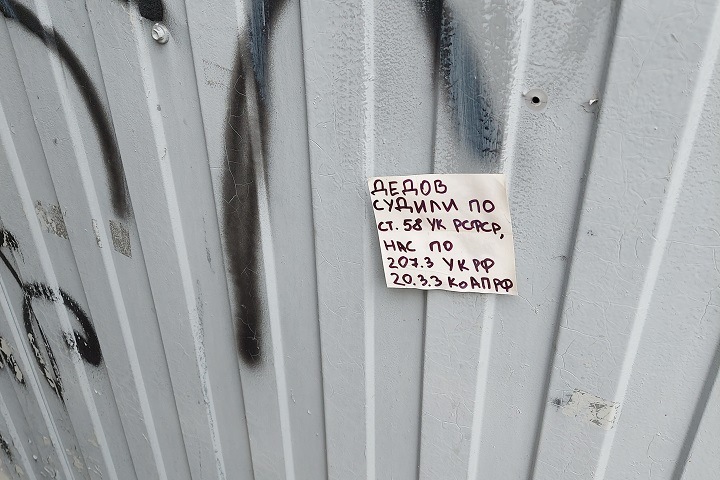 ДЕДОВ
СУДИЛИ ПО
СТ. 58 УК РСФСР,
НАС ПО
207.3 УК РФ
20.3.3 КоАП РФ